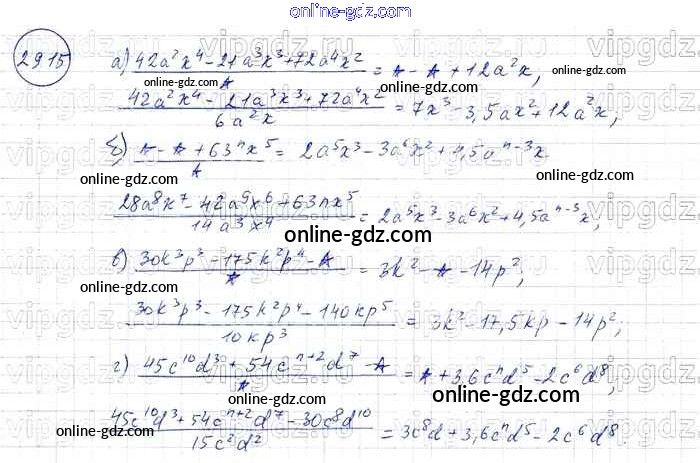 online-gdz.com
2915
а) (42a²x⁴ - 21a³x³ + 72a⁴x²)/A = A - A + 12a²x,
online-gdz.com
(42a²x⁴ - 21a³x³ + 72a⁴x²)/(6a²x) = 7x³ - 3,5ax² + 12a²x;
б) (A - A + 63ⁿx⁵)/A = 2a⁵x³ - 3a⁶x² + 4,5aⁿ⁻³x
online-gdz.com
online-gdz.com
(28a⁸x⁷ - 42a⁹x⁶ + 63nx⁵)/(14a³x⁴) = 2a⁵x³ - 3a⁶x² + 4,5aⁿ⁻³x;
online-gdz.com
в) (30k³p³ - 175k²p⁴ - A)/A = 3k² - A - 14p²;
online-gdz.com
online-gdz.com
(30k³p³ - 175k²p⁴ - 140kp⁵)/(10kp³) = 3k² - 17,5kp - 14p²;
online-gdz.com
г) (45c¹⁰d³ + 54cⁿ⁺²d⁷ - A)/A = A + 3,6cⁿd⁵ - 2c⁶d⁸,
online-gdz.com
online-gdz.com
(45c¹⁰d³ + 54cⁿ⁺²d⁷ - 30c⁸d¹⁰)/(15c²d²) = 3c⁸d + 3,6cⁿd⁵ - 2c⁶d⁸.
online-gdz.com